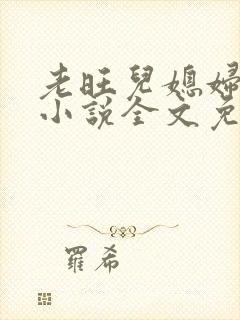 老旺兒媳婦
小說全文免
羅希